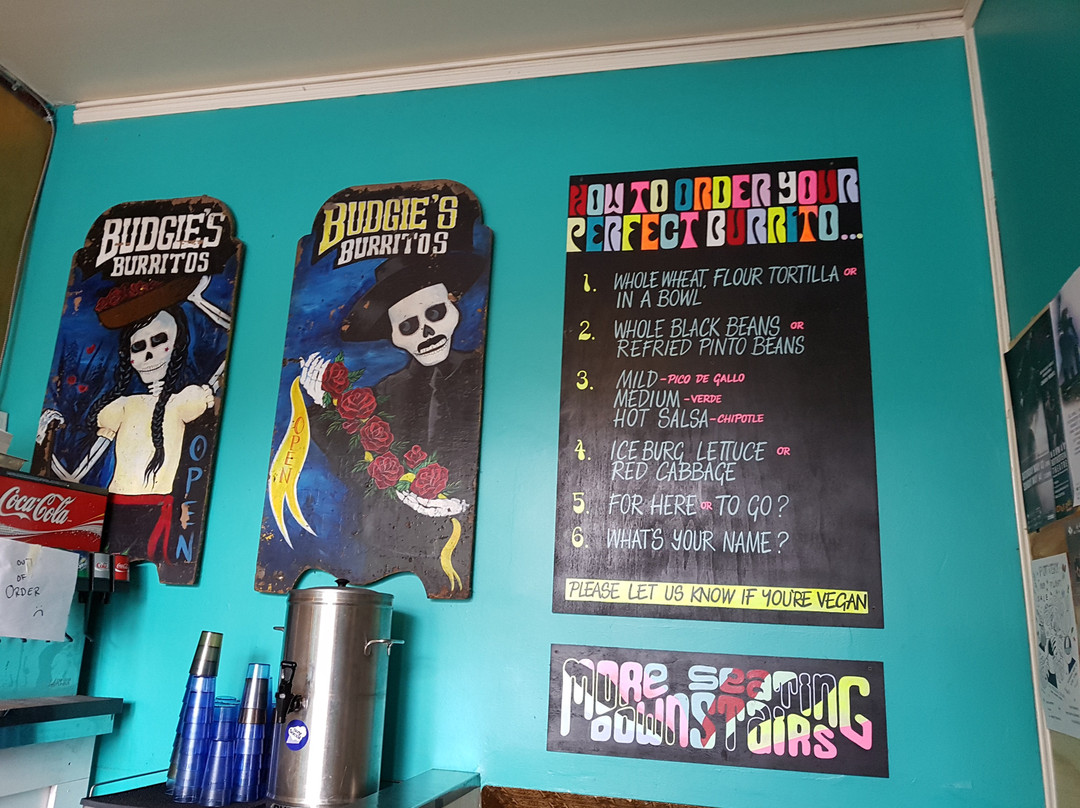 BUDGIE'S
BURRITOS
OPEN
BUDGIE'S
BURRITOS
OPEN
HOW TO ORDER YOUR
PERFECT BURRITO...
1. WHOLE WHEAT, FLOUR TORTILLA OR
IN A BOWL
2. WHOLE BLACK BEANS OR
REFRIED PINTO BEANS
3. MILD - PICO DE GALLO
MEDIUM - VERDE
HOT SALSA - CHIPOTLE
4. ICEBURG LETTUCE OR
RED CABBAGE
5. FOR HERE OR TO GO?
6. WHAT'S YOUR NAME?
PLEASE LET US KNOW IF YOU'RE VEGAN
MORE SEATING
DOWNSTAIRS
Coca-Cola
OUT
OF
ORDER